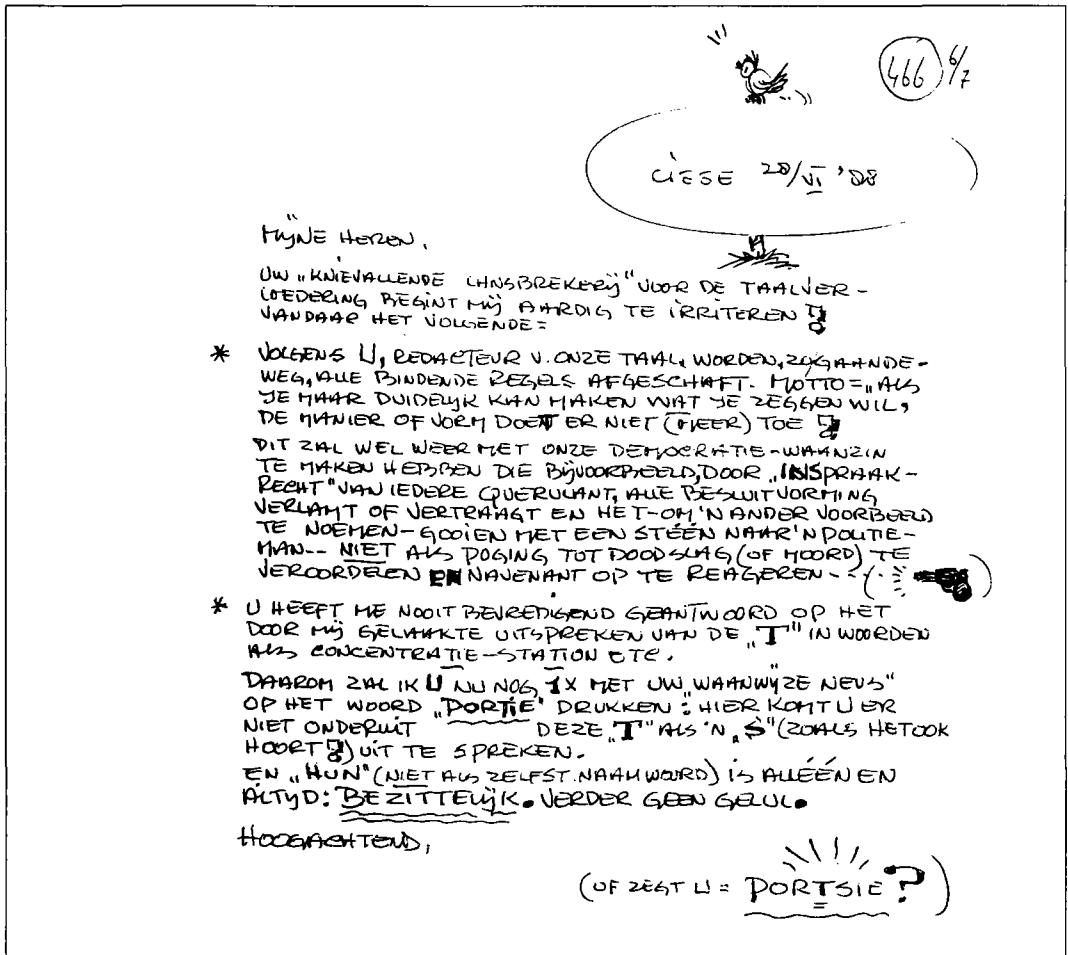 466 6/7
CIESE 28/VI '88
MIJNE HEREN,
UW „KNIEVALLENDE LANSBREKERIJ" VOOR DE TAALVER-
LOEDERING BEGINT MIJ AARDIG TE IRRITEREN
VANDAAR HET VOLGENDE =
* VOLGENS U, REDACTEUR V. ONZE TAAL, WORDEN, ZOGAANDE-
WEG, ALLE BINDENDE REGELS AFGESCHAFT. MOTTO = „ALS
JE MAAR DUIDELIJK KAN MAKEN WAT JE ZEGGEN WIL,
DE MANIER OF VORM DOET ER NIET (MEER) TOE
DIT ZAL WEL WEER MET ONZE DEMOCRATIE-WAANZIN
TE MAKEN HEBBEN DIE BIJVOORBEELD, DOOR „INSPRAAK-
RECHT" VAN IEDERE QUERULANT, ALLE BESLUITVORMING
VERLAMT OF VERTRAAGT EN HET-OM 'N ANDER VOORBEELD
TE NOEMEN-GOOIEN MET EEN STÉÉN NAAR 'N POLITIE-
MAN-- NIET ALS POGING TOT DOODSLAG (OF MOORD) TE
VEROORDELEN EN NAVENANT OP TE REAGEREN ---
* U HEEFT ME NOOIT BEVREDIGEND GEANTWOORD OP HET
DOOR MIJ GELAAKTE UITSPREKEN VAN DE „T" IN WOORDEN
ALS CONCENTRATIE-STATION ETC.
DAAROM ZAL IK U NU NOG 1X MET UW „WAANWIJZE NEUS"
OP HET WOORD „PORTIE" DRUKKEN : HIER KOMT U ER
NIET ONDERUIT DEZE „T" ALS 'N „S" (ZOALS HET OOK
HOORT) UIT TE SPREKEN.
EN „HUN" (NIET ALS ZELFST. NAAMWOORD) IS ALLÉÉN EN
ALTIJD: BEZITTELIJK. VERDER GEEN GELUL.
HOOGACHTEND,
(OF ZEGT U = PORTSIE?)